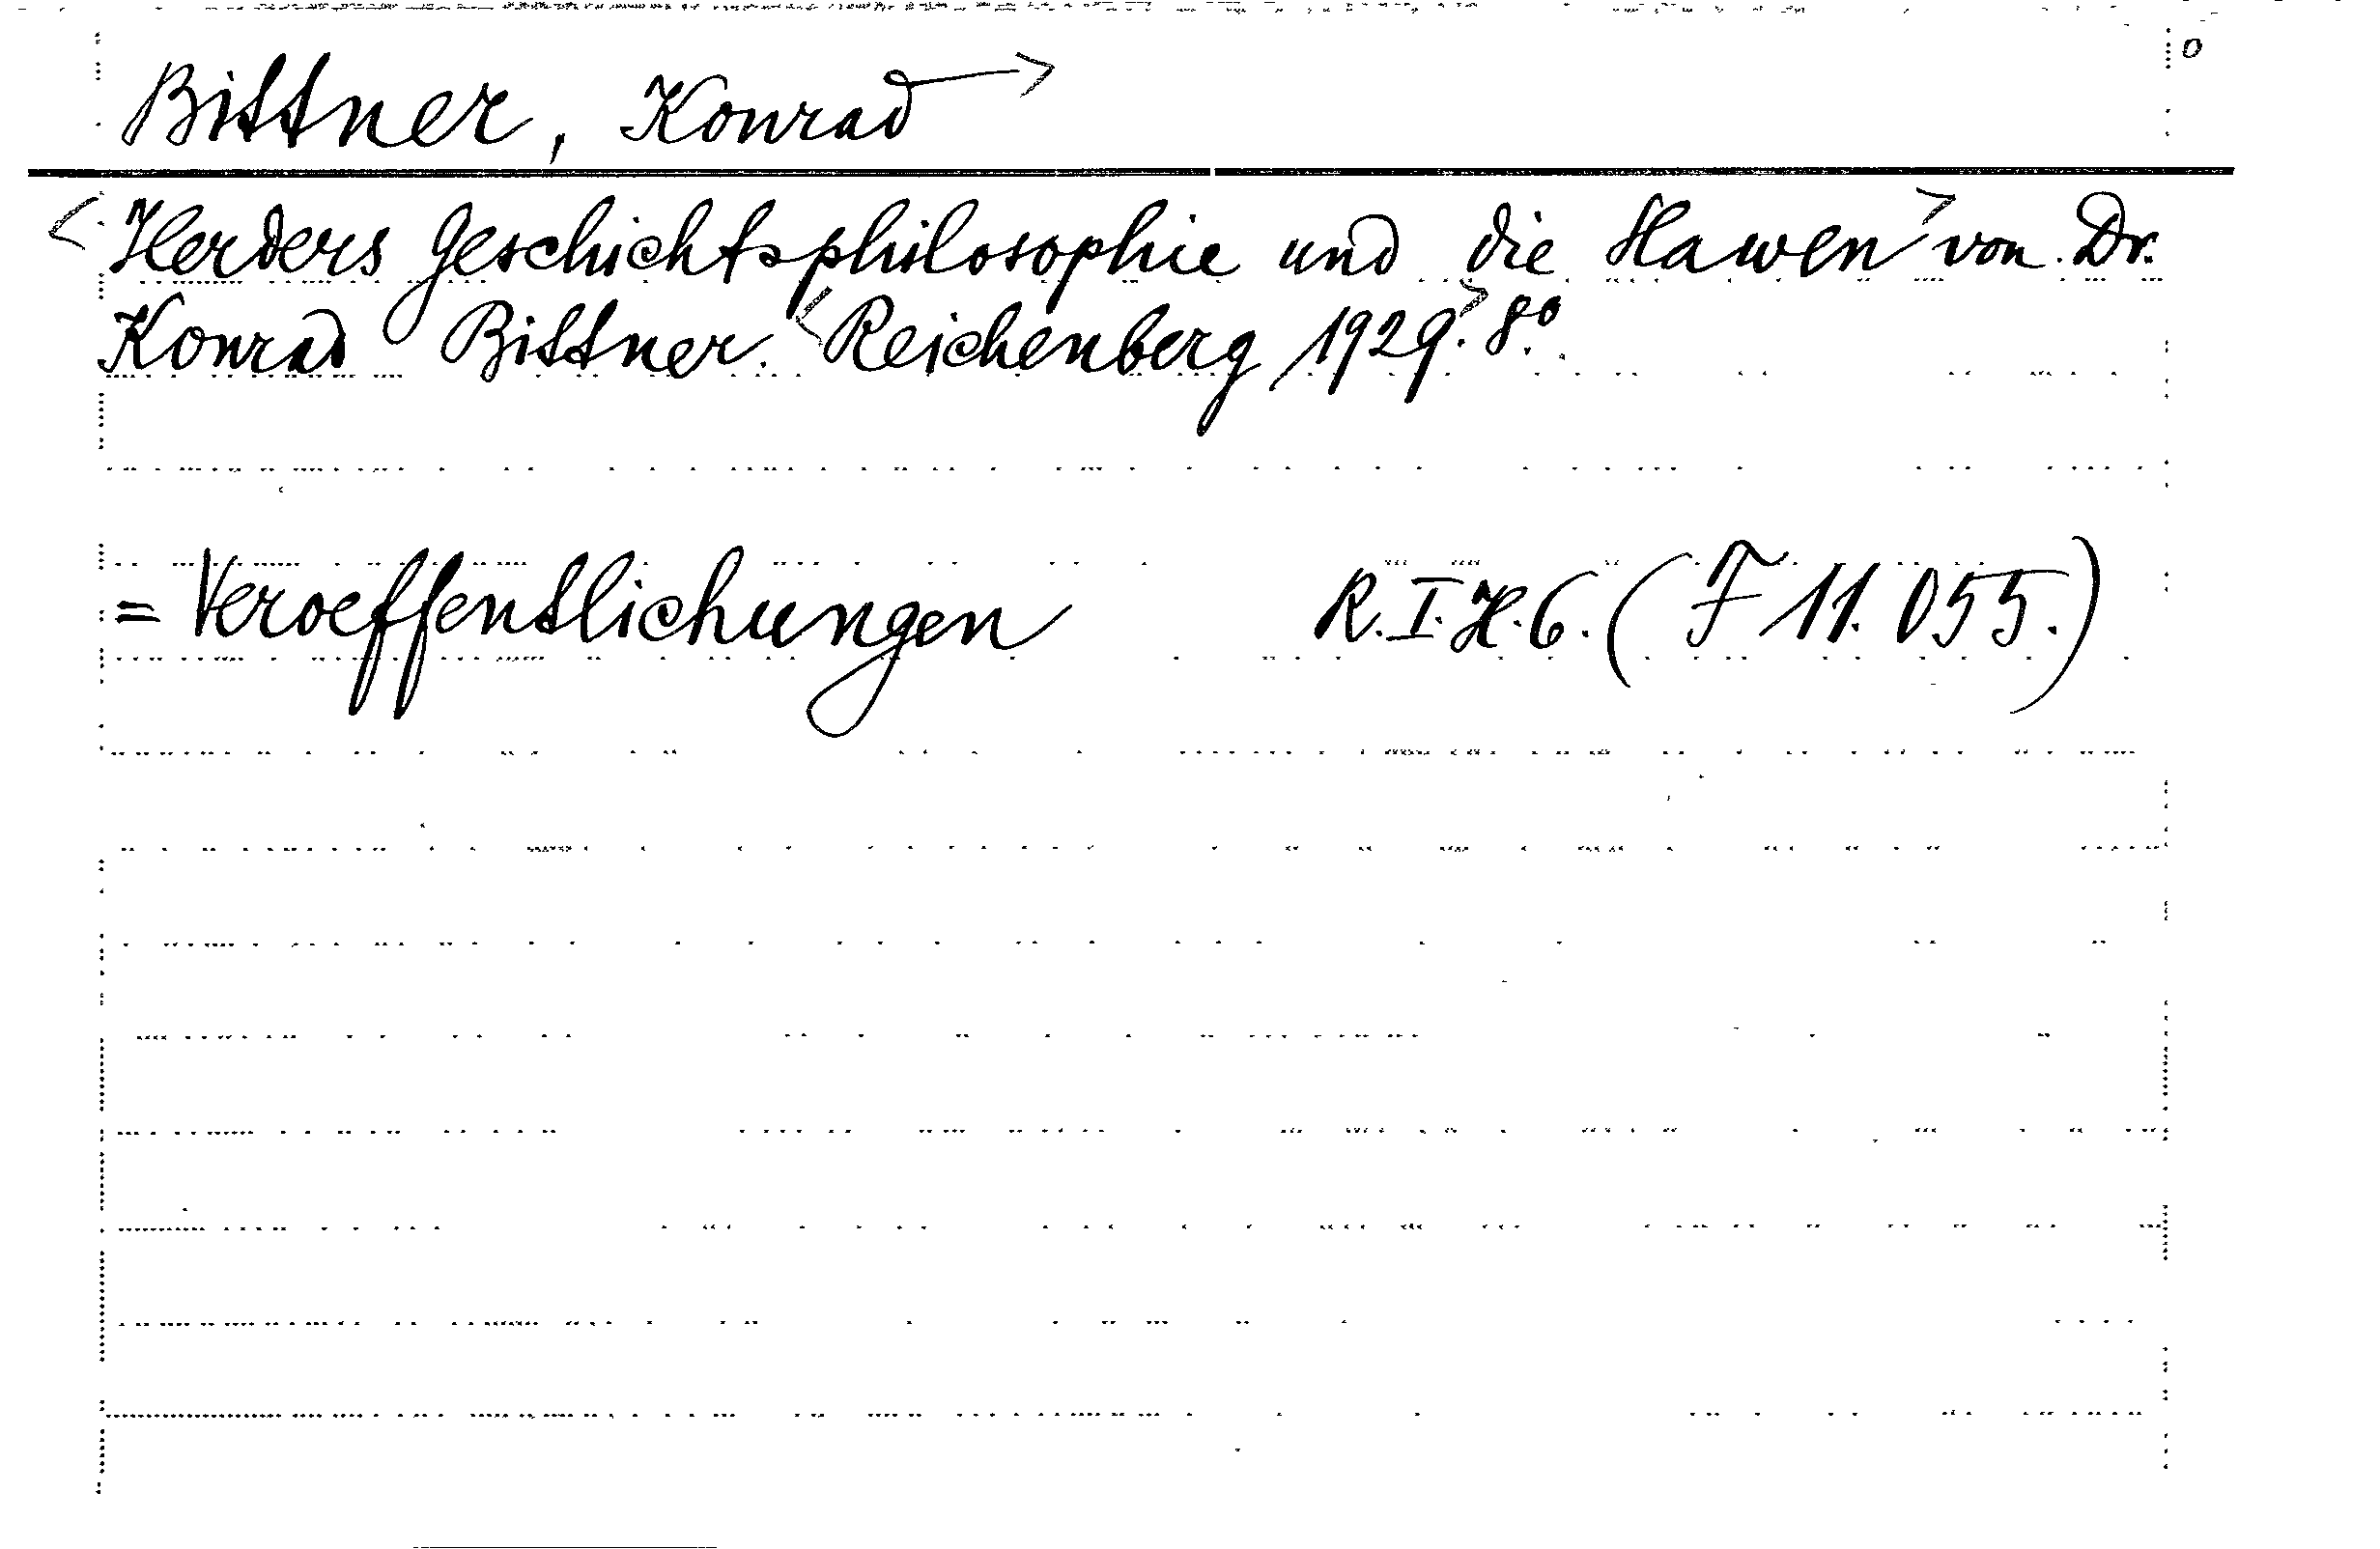 Bittner, Konrad
Herders Geschichtsphilosophie und die Slawen von Dr.
Konrad Bittner. Reichenberg 1929. 8°.
= Veroeffentlichungen R.I.H.6. (F 11.055.)